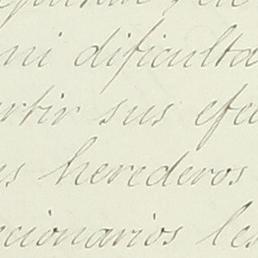 ni dificulta
rtir sus efec
s herederos
cionarios les